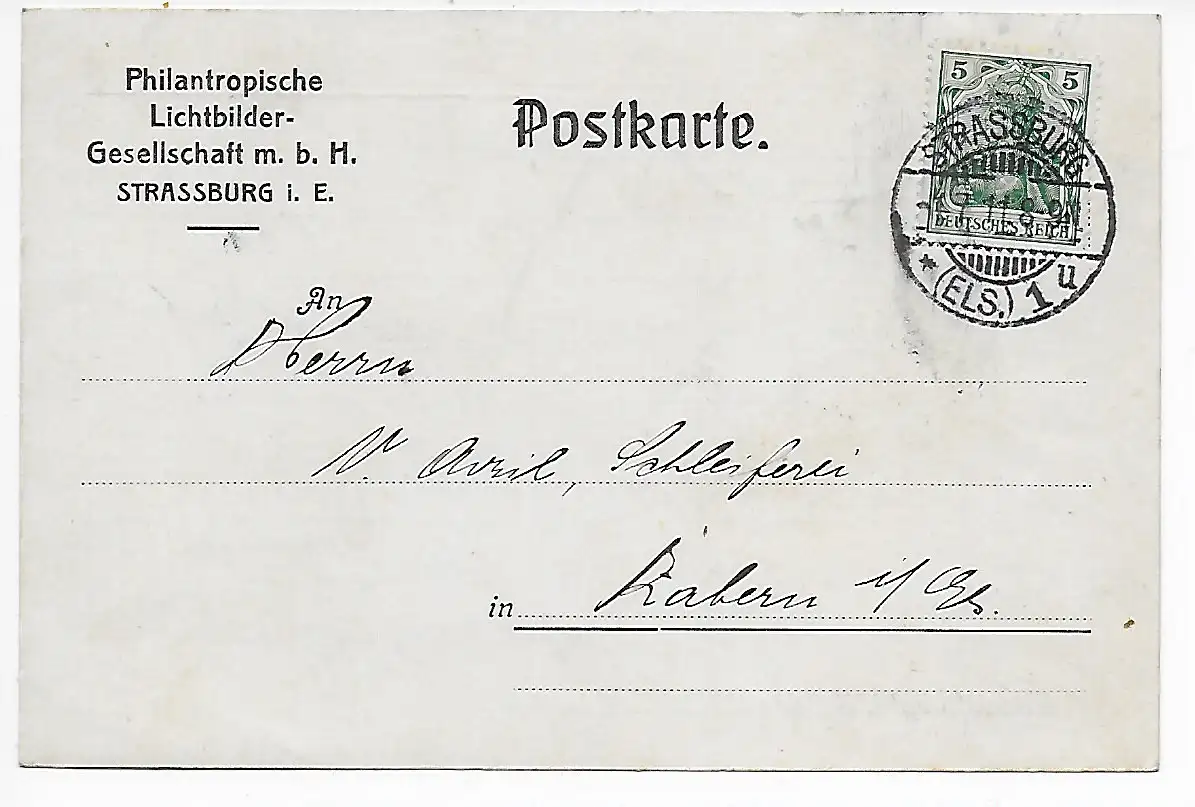 Philantropische
Lichtbilder-
Gesellschaft m. b. H.
STRASSBURG i. E.
Postkarte.
5 5
DEUTSCHES REICH
STRASSBURG
11.8-9
* (ELS.) 1 u
An
Herrn
V. Avril, Schleiferei
in Zabern i/ Els.